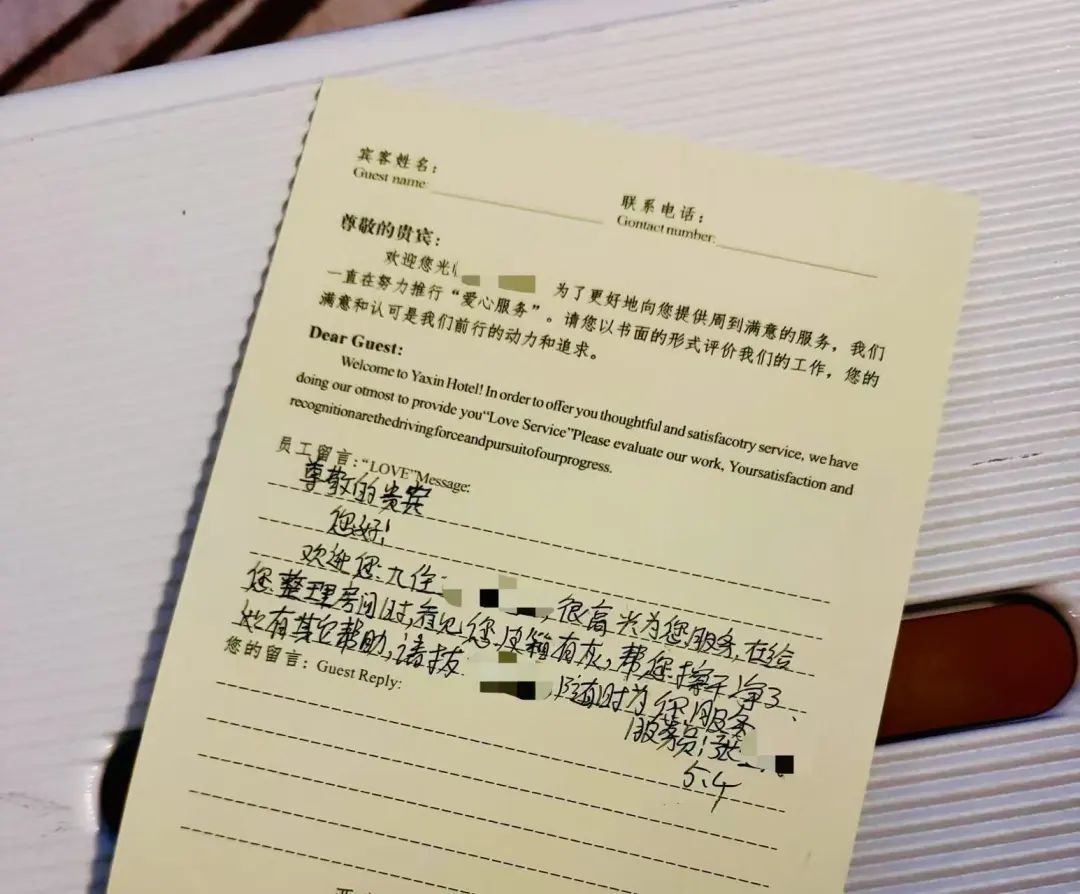 宾客姓名：
Guest name:
联系电话：
Gontact number:
尊敬的贵宾：
欢迎您光 为了更好地向您提供周到满意的服务，我们
一直在努力推行“爱心服务”。请您以书面的形式评价我们的工作，您的
满意和认可是我们前行的动力和追求。
Dear Guest:
Welcome to Yaxin Hotel! In order to offer you thoughtful and satisfacotry service, we have
doing our otmost to provide you“Love Service”Please evaluate our work, Yoursatisfaction and
recognitionarethedrivingforceandpursuitofourprogress.
员工留言：“LOVE”Message:
尊敬的贵宾
您好！
欢迎您入住 ，很高兴为您服务，在给
您整理房间时，看见您皮箱有灰，帮您擦干净了、
还有其它帮助，请拔 ，随时为您服务
服务员：张
5.4
您的留言：Guest Reply: